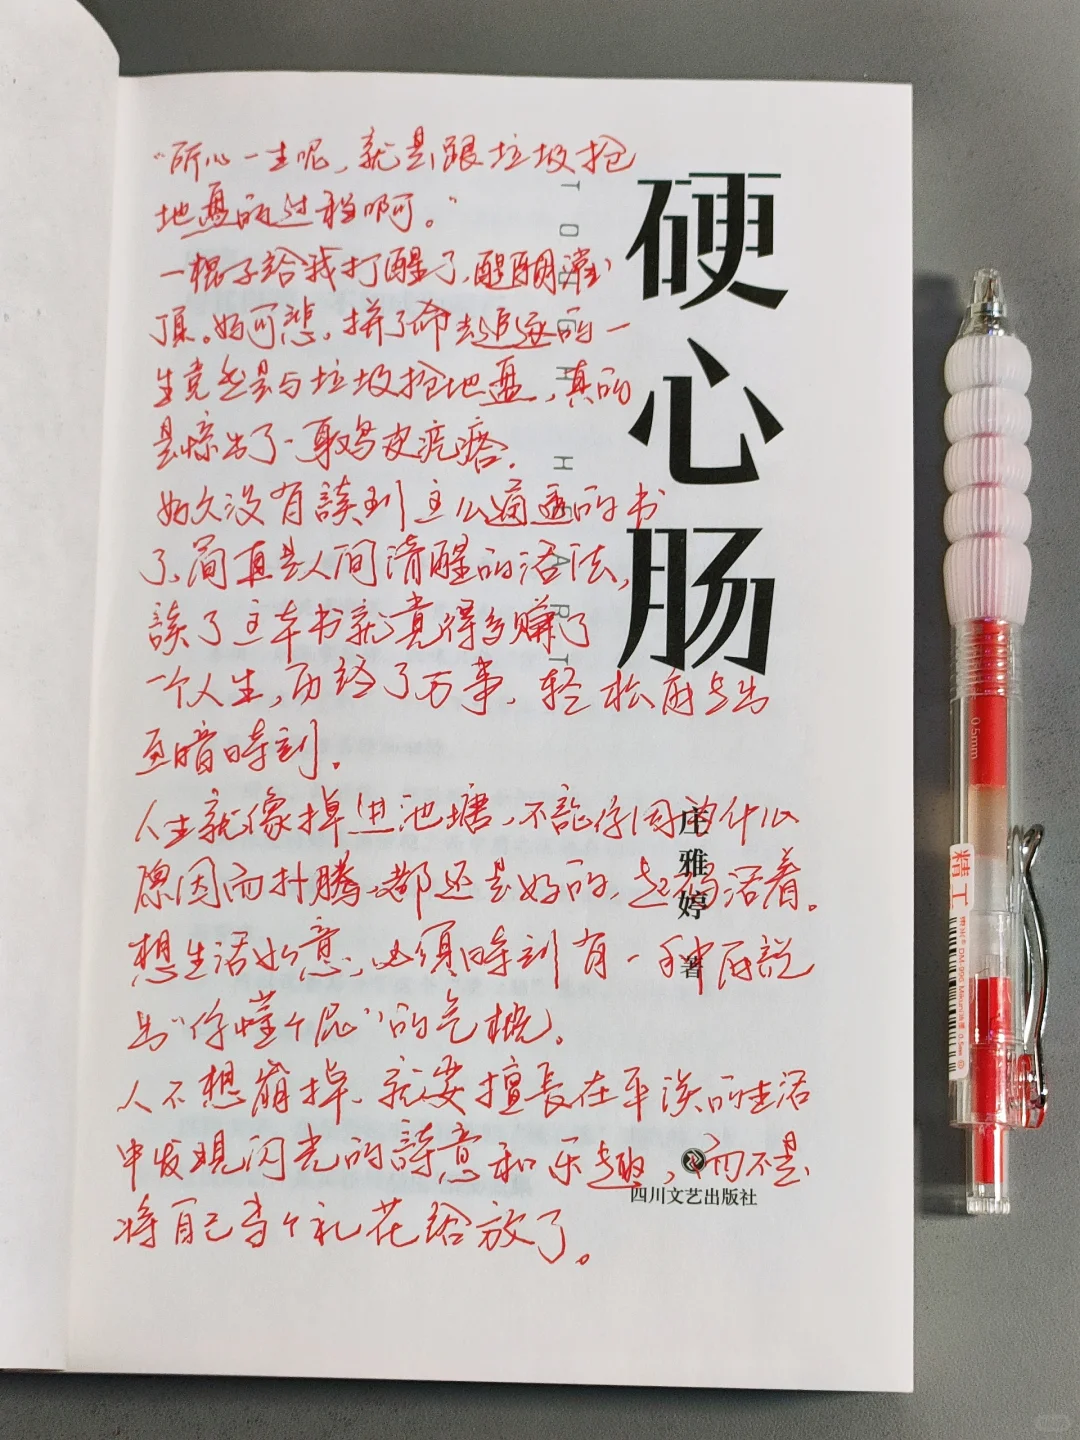 “所以一生呢，就是跟垃圾抢
地盘的过程啊。”
一棍子给我打醒了，醍醐灌
顶。好可悲，拼了命去追逐的一
生竟然是与垃圾抢地盘，真的
是惊出了一身鸡皮疙瘩。
好久没有读到这么通透的书
了，简直是人间清醒的活法，
读了这本书就觉得多赚了
一个人生，历经了万事，轻松府去出
至暗时刻。
人生就像掉进池塘，不論你因为什么
原因而扑腾，都还是好的，起码活着。
想生活如意，必须时刻有一种能說
出“你懂个屁”的气概。
人不想崩掉，就要擅長在平淡的生活
中发现闪光的詩意和乐趣，而不是
将自己当个礼花给放了。
硬心肠
TOUGH HEART
庄雅婷 著
四川文艺出版社
0.5mm
精工